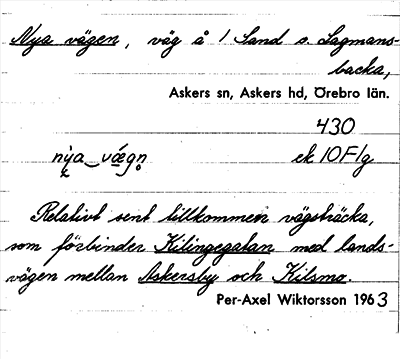 Nya vägen, väg å 1 Sand s. Lagmans-
backa,
Askers sn, Askers hd, Örebro län.
430
nya vægn ek 10F1g
Relativt sent tillkommen vägsträcka,
som förbinder Kilingegatan med lands-
vägen mellan Askersby och Kilsmo.
Per-Axel Wiktorsson 1963